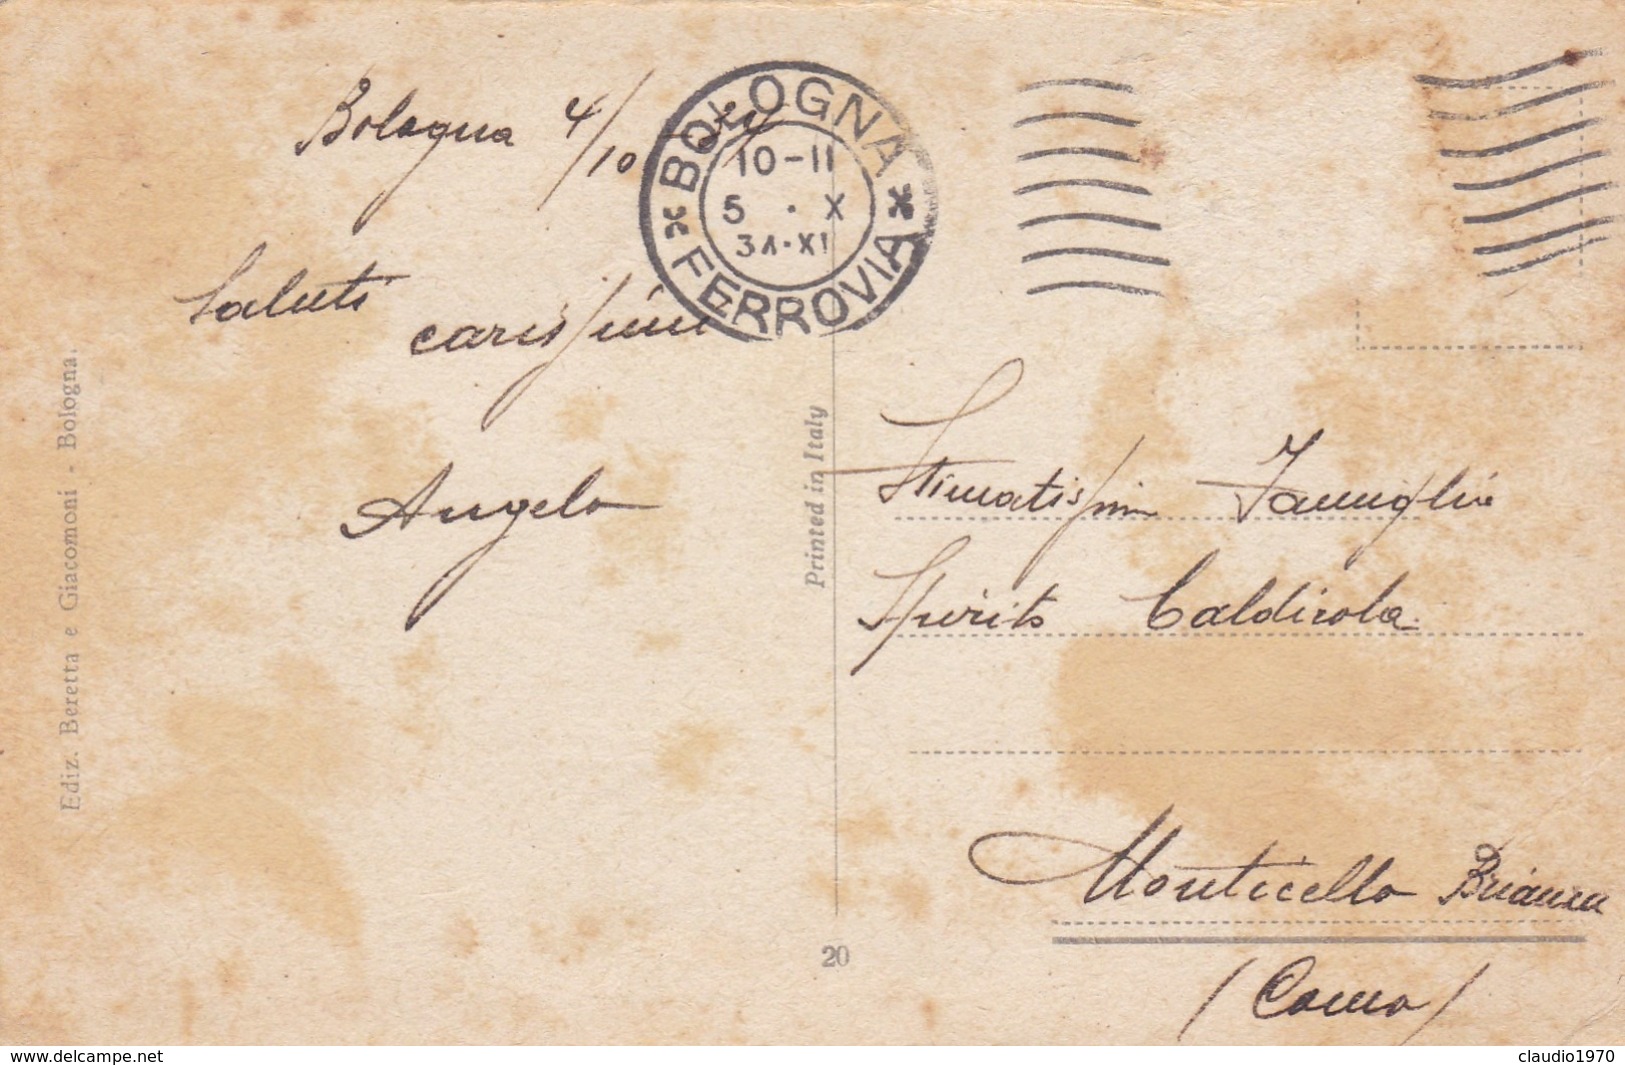 Bologna 4/10
BOLOGNA
10-11
5 . X
34·XI
FERROVIA
Saluti
carissimi
Angelo
Ediz. Beretta e Giacomoni - Bologna.
Printed in Italy
Stimatissima Famiglia
Spirito Caldirola
Monticello Brianza
(Como)
20
claudio1970